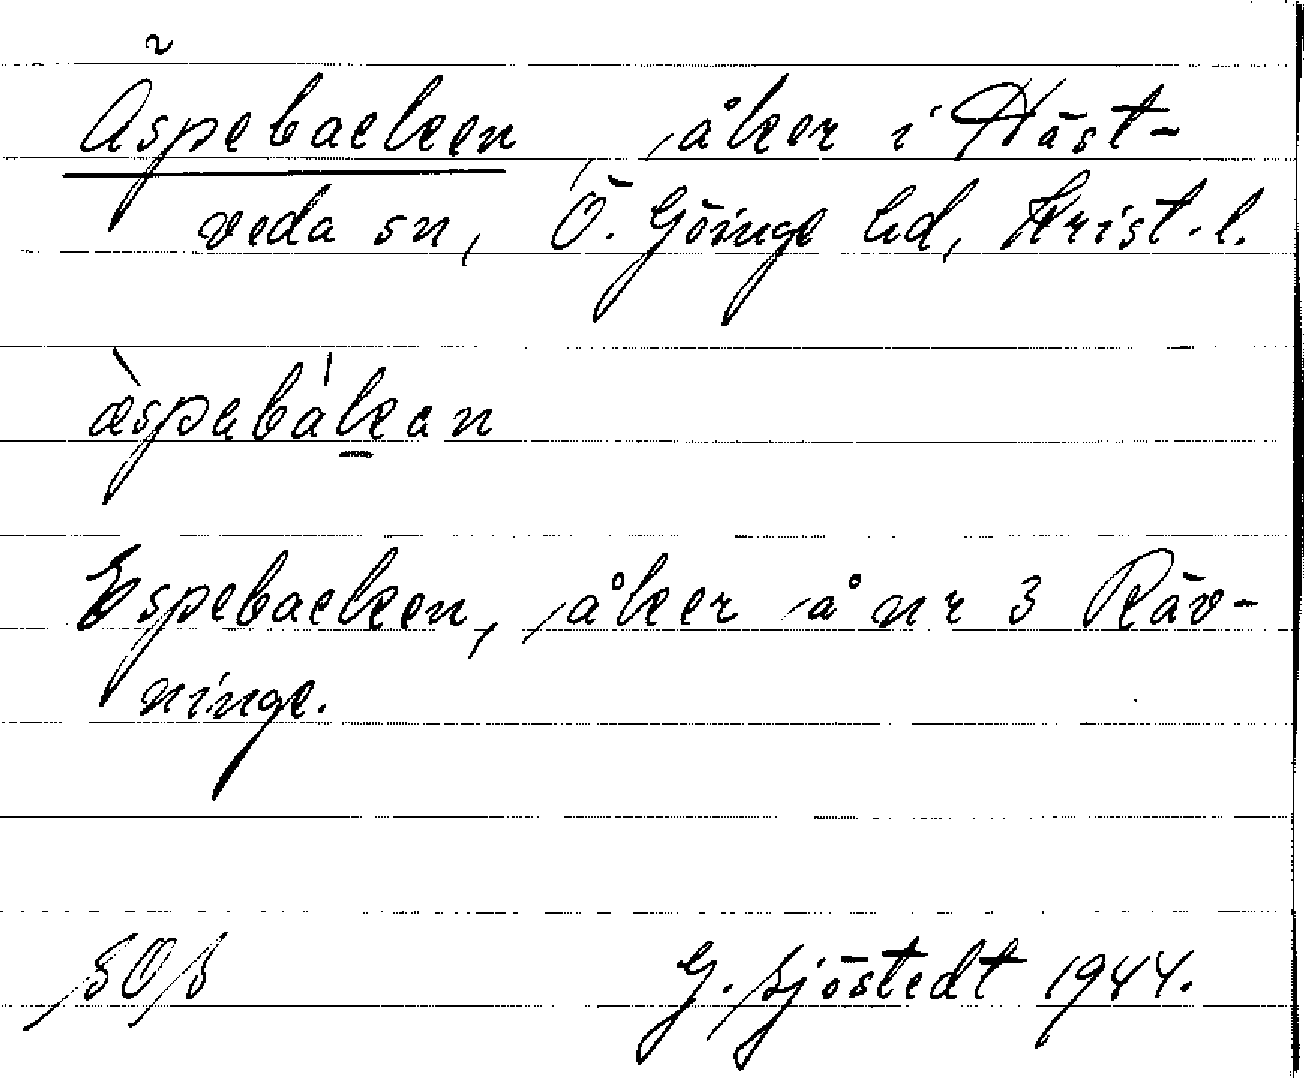 Äspebacken, åker i Häst-
veda sn, Ö. Göinge hd, Krist. l.
æ̀spəbákan
Espebacken, åker å nr 3 Räv-
ninge.
SOS G. Sjöstedt 1944.